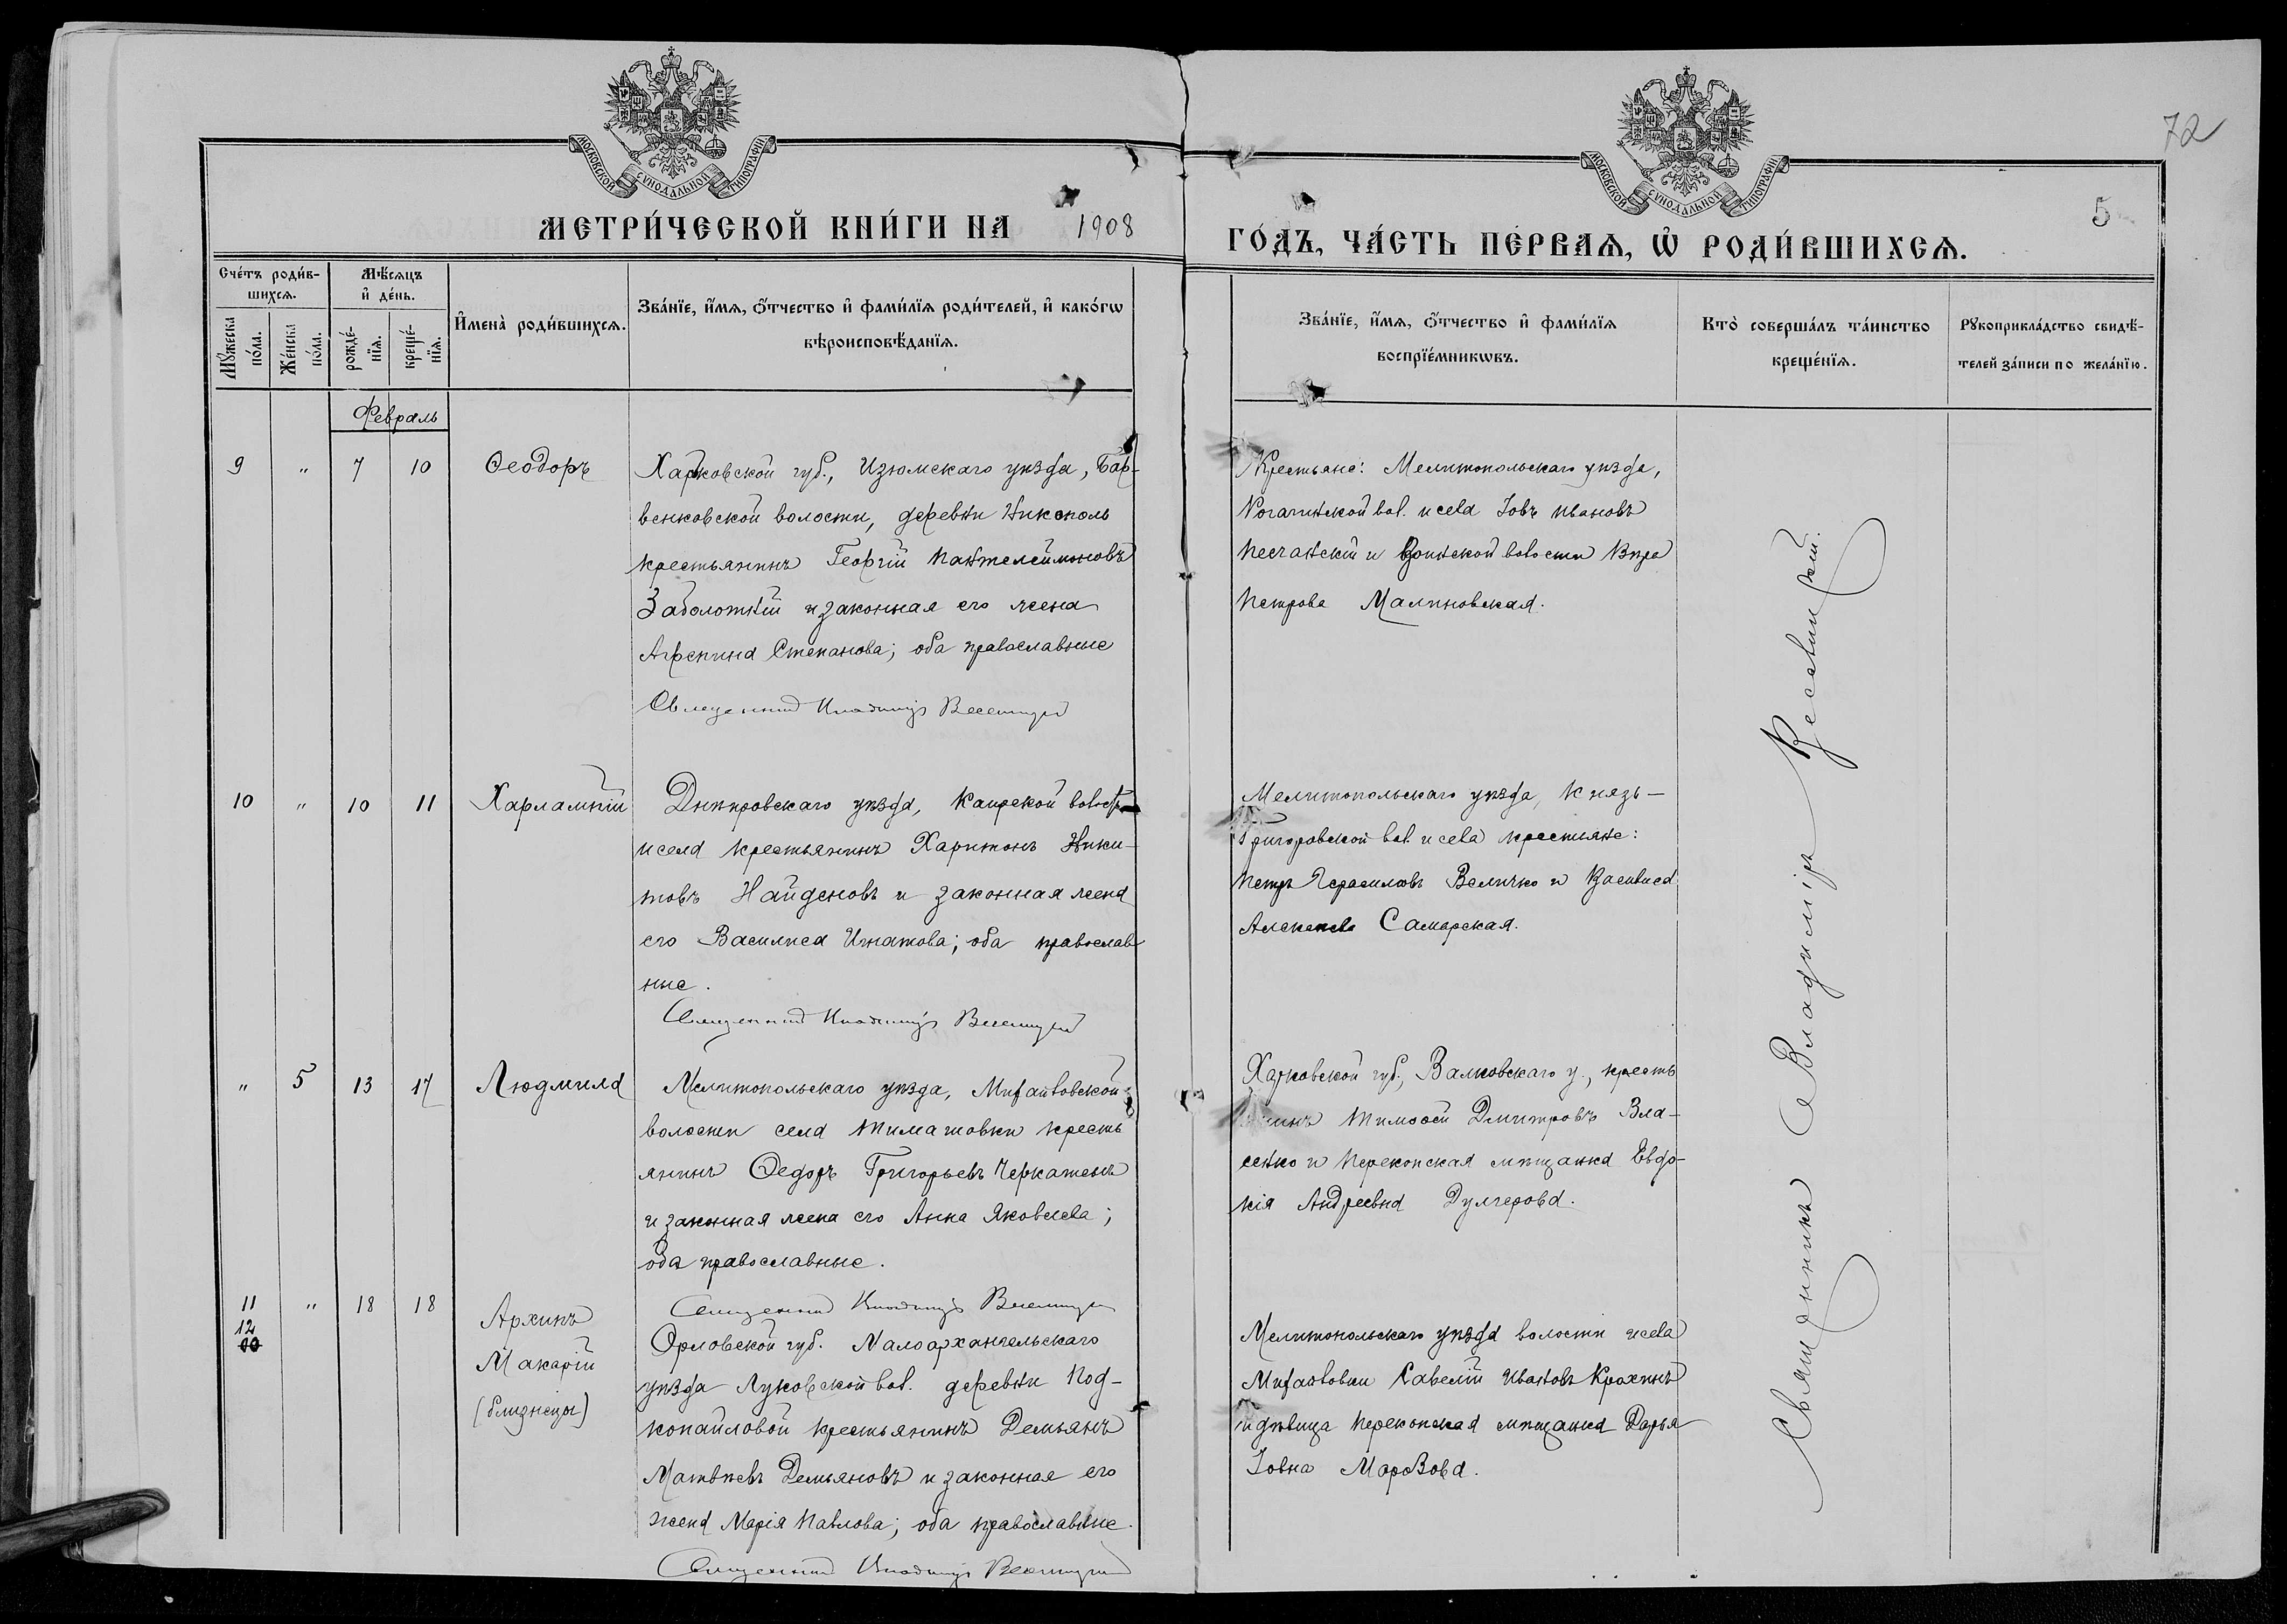 МОСКОВСКОЙ СѴНОДАЛЬНОЙ ТИПОГРАФІИ
МОСКОВСКОЙ СѴНОДАЛЬНОЙ ТИПОГРАФІИ
72
5
МЕТРИ́ЧЕСКОЙ КНИ́ГИ НА 1908 ГО́ДЪ, ЧА́СТЬ ПЕ́РВАѦ, Ѡ҆ РОДИ́ВШИХСѦ.
Сче́тъ роди́в-
шихсѧ.
Мѣ́сѧцъ
и҆ де́нь.
Мꙋ́жеска
по́ла.
Же́нска
по́ла.
рожде́-
нїѧ.
креще́-
нїѧ.
И҆мена̀ роди́вшихсѧ.
Зва́нїе, и҆́мѧ, ѻ҆́тчество и҆ фами́лїѧ роди́телей, и҆ како́гѡ
вѣроисповѣ́данїѧ.
Зва́нїе, и҆́мѧ, ѻ҆́тчество и҆ фами́лїѧ
воспрїе́мникѡвъ.
Кто̀ соверша́лъ та́инство
креще́нїѧ.
Рꙋкоприкла́дство свидѣ́-
телей за́писи по жела́нїю.
Февраль
9 " 7 10 Ѳеодоръ
Харковской губ., Изюмскаго уѣзда, Бар-
венковской волости, деревни Никополь
крестьянинъ Георгій Пантелеймоновъ
Заболотній и законная его жена
Агрепина Степанова; оба православные
Священникъ Владиміръ
Крестьяне: Мелитопольскаго уѣзда,
Рогачинской вол. и села Іовъ Ивановъ
Песчанскій и Воинской волости Вѣра
Петрова Малиновская.
10 " 10 11 Харлампій
Днѣпровскаго уѣзда, Каирской волости
и села крестьянинъ Харитонъ Ники-
товъ Найденовъ и законная жена
его Василиса Игнатова; оба православ
ные.
Священникъ Владиміръ
Мелитопольскаго уѣзда, Князь-
Григоровской вол. и села крестьяне:
Петръ Герасимовъ Величко и Василиса
Алексѣева Самарская.
" 5 13 17 Людмила
Мелитопольскаго уѣзда, Михайловской
волости села Тимашовки кресть
янинъ Ѳедоръ Григорьевъ Черкашенъ
и законная жена его Анна Яковлева;
оба православные.
Священникъ Владиміръ
Харковской губ., Валковскаго у., кресть
янинъ Тимоѳей Дмитровъ Вла-
сенко и Перекопская мѣщанка Евдо-
кія Андреевна Дулгерова.
11 " 18 18
12
Архипъ
Макарій
(близнецы)
Орловской губ. Малоархангельскаго
уѣзда Луковской вол. деревни Под-
копайловой крестьянинъ Демьянъ
Матвѣевъ Демьяновъ и законная его
жена Марія Павлова; оба православные.
Священникъ Владиміръ
Мелитопольскаго уѣзда волости и села
Михайловки Савелій Ивановъ Крохинъ
и дѣвица Перекопская мѣщанка Дарья
Іовна Морозова.
Священникъ Владиміръ